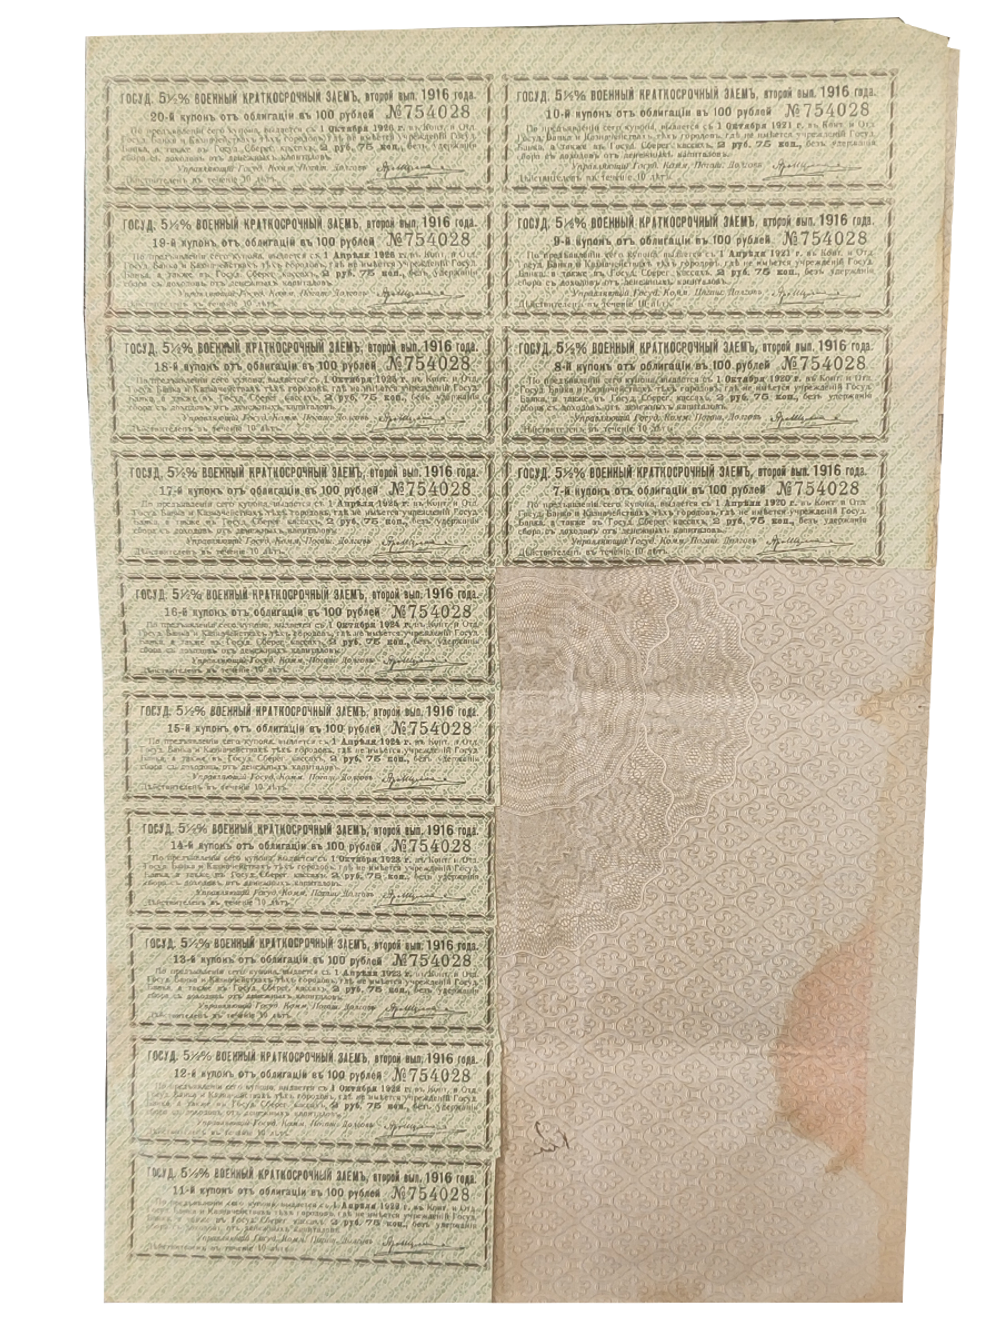 ГОСУД. 5½% ВОЕННЫЙ КРАТКОСРОЧНЫЙ ЗАЕМЪ, второй вып. 1916 года.
20-й купонъ отъ облигаціи въ 100 рублей №754028
По предъявленіи сего купона, выдается съ 1 Октября 1926 г. въ Конт. и Отд.
Госуд. Банка и Казначействахъ тѣхъ городовъ, гдѣ не имѣется учрежденій Госуд.
Банка, а также въ Госуд. Сберег. кассахъ, 2 руб. 75 коп., безъ удержанія
сбора съ доходовъ отъ денежныхъ капиталовъ.
Управляющій Госуд. Комм. Погаш. Долговъ
Дѣйствителенъ въ теченіе 10 лѣтъ.
ГОСУД. 5½% ВОЕННЫЙ КРАТКОСРОЧНЫЙ ЗАЕМЪ, второй вып. 1916 года.
19-й купонъ отъ облигаціи въ 100 рублей №754028
По предъявленіи сего купона, выдается съ 1 Апрѣля 1926 г. въ Конт. и Отд.
Госуд. Банка и Казначействахъ тѣхъ городовъ, гдѣ не имѣется учрежденій Госуд.
Банка, а также въ Госуд. Сберег. кассахъ, 2 руб. 75 коп., безъ удержанія
сбора съ доходовъ отъ денежныхъ капиталовъ.
Управляющій Госуд. Комм. Погаш. Долговъ
Дѣйствителенъ въ теченіе 10 лѣтъ.
ГОСУД. 5½% ВОЕННЫЙ КРАТКОСРОЧНЫЙ ЗАЕМЪ, второй вып. 1916 года.
18-й купонъ отъ облигаціи въ 100 рублей №754028
По предъявленіи сего купона, выдается съ 1 Октября 1925 г. въ Конт. и Отд.
Госуд. Банка и Казначействахъ тѣхъ городовъ, гдѣ не имѣется учрежденій Госуд.
Банка, а также въ Госуд. Сберег. кассахъ, 2 руб. 75 коп., безъ удержанія
сбора съ доходовъ отъ денежныхъ капиталовъ.
Управляющій Госуд. Комм. Погаш. Долговъ
Дѣйствителенъ въ теченіе 10 лѣтъ.
ГОСУД. 5½% ВОЕННЫЙ КРАТКОСРОЧНЫЙ ЗАЕМЪ, второй вып. 1916 года.
17-й купонъ отъ облигаціи въ 100 рублей №754028
По предъявленіи сего купона, выдается съ 1 Апрѣля 1925 г. въ Конт. и Отд.
Госуд. Банка и Казначействахъ тѣхъ городовъ, гдѣ не имѣется учрежденій Госуд.
Банка, а также въ Госуд. Сберег. кассахъ, 2 руб. 75 коп., безъ удержанія
сбора съ доходовъ отъ денежныхъ капиталовъ.
Управляющій Госуд. Комм. Погаш. Долговъ
Дѣйствителенъ въ теченіе 10 лѣтъ.
ГОСУД. 5½% ВОЕННЫЙ КРАТКОСРОЧНЫЙ ЗАЕМЪ, второй вып. 1916 года.
16-й купонъ отъ облигаціи въ 100 рублей №754028
По предъявленіи сего купона, выдается съ 1 Октября 1924 г. въ Конт. и Отд.
Госуд. Банка и Казначействахъ тѣхъ городовъ, гдѣ не имѣется учрежденій Госуд.
Банка, а также въ Госуд. Сберег. кассахъ, 2 руб. 75 коп., безъ удержанія
сбора съ доходовъ отъ денежныхъ капиталовъ.
Управляющій Госуд. Комм. Погаш. Долговъ
Дѣйствителенъ въ теченіе 10 лѣтъ.
ГОСУД. 5½% ВОЕННЫЙ КРАТКОСРОЧНЫЙ ЗАЕМЪ, второй вып. 1916 года.
15-й купонъ отъ облигаціи въ 100 рублей №754028
По предъявленіи сего купона, выдается съ 1 Апрѣля 1924 г. въ Конт. и Отд.
Госуд. Банка и Казначействахъ тѣхъ городовъ, гдѣ не имѣется учрежденій Госуд.
Банка, а также въ Госуд. Сберег. кассахъ, 2 руб. 75 коп., безъ удержанія
сбора съ доходовъ отъ денежныхъ капиталовъ.
Управляющій Госуд. Комм. Погаш. Долговъ
Дѣйствителенъ въ теченіе 10 лѣтъ.
ГОСУД. 5½% ВОЕННЫЙ КРАТКОСРОЧНЫЙ ЗАЕМЪ, второй вып. 1916 года.
14-й купонъ отъ облигаціи въ 100 рублей №754028
По предъявленіи сего купона, выдается съ 1 Октября 1923 г. въ Конт. и Отд.
Госуд. Банка и Казначействахъ тѣхъ городовъ, гдѣ не имѣется учрежденій Госуд.
Банка, а также въ Госуд. Сберег. кассахъ, 2 руб. 75 коп., безъ удержанія
сбора съ доходовъ отъ денежныхъ капиталовъ.
Управляющій Госуд. Комм. Погаш. Долговъ
Дѣйствителенъ въ теченіе 10 лѣтъ.
ГОСУД. 5½% ВОЕННЫЙ КРАТКОСРОЧНЫЙ ЗАЕМЪ, второй вып. 1916 года.
13-й купонъ отъ облигаціи въ 100 рублей №754028
По предъявленіи сего купона, выдается съ 1 Апрѣля 1923 г. въ Конт. и Отд.
Госуд. Банка и Казначействахъ тѣхъ городовъ, гдѣ не имѣется учрежденій Госуд.
Банка, а также въ Госуд. Сберег. кассахъ, 2 руб. 75 коп., безъ удержанія
сбора съ доходовъ отъ денежныхъ капиталовъ.
Управляющій Госуд. Комм. Погаш. Долговъ
Дѣйствителенъ въ теченіе 10 лѣтъ.
ГОСУД. 5½% ВОЕННЫЙ КРАТКОСРОЧНЫЙ ЗАЕМЪ, второй вып. 1916 года.
12-й купонъ отъ облигаціи въ 100 рублей №754028
По предъявленіи сего купона, выдается съ 1 Октября 1922 г. въ Конт. и Отд.
Госуд. Банка и Казначействахъ тѣхъ городовъ, гдѣ не имѣется учрежденій Госуд.
Банка, а также въ Госуд. Сберег. кассахъ, 2 руб. 75 коп., безъ удержанія
сбора съ доходовъ отъ денежныхъ капиталовъ.
Управляющій Госуд. Комм. Погаш. Долговъ
Дѣйствителенъ въ теченіе 10 лѣтъ.
ГОСУД. 5½% ВОЕННЫЙ КРАТКОСРОЧНЫЙ ЗАЕМЪ, второй вып. 1916 года.
11-й купонъ отъ облигаціи въ 100 рублей №754028
По предъявленіи сего купона, выдается съ 1 Апрѣля 1922 г. въ Конт. и Отд.
Госуд. Банка и Казначействахъ тѣхъ городовъ, гдѣ не имѣется учрежденій Госуд.
Банка, а также въ Госуд. Сберег. кассахъ, 2 руб. 75 коп., безъ удержанія
сбора съ доходовъ отъ денежныхъ капиталовъ.
Управляющій Госуд. Комм. Погаш. Долговъ
Дѣйствителенъ въ теченіе 10 лѣтъ.
ГОСУД. 5½% ВОЕННЫЙ КРАТКОСРОЧНЫЙ ЗАЕМЪ, второй вып. 1916 года.
10-й купонъ отъ облигаціи въ 100 рублей №754028
По предъявленіи сего купона, выдается съ 1 Октября 1921 г. въ Конт. и Отд.
Госуд. Банка и Казначействахъ тѣхъ городовъ, гдѣ не имѣется учрежденій Госуд.
Банка, а также въ Госуд. Сберег. кассахъ, 2 руб. 75 коп., безъ удержанія
сбора съ доходовъ отъ денежныхъ капиталовъ.
Управляющій Госуд. Комм. Погаш. Долговъ
Дѣйствителенъ въ теченіе 10 лѣтъ.
ГОСУД. 5½% ВОЕННЫЙ КРАТКОСРОЧНЫЙ ЗАЕМЪ, второй вып. 1916 года.
9-й купонъ отъ облигаціи въ 100 рублей №754028
По предъявленіи сего купона, выдается съ 1 Апрѣля 1921 г. въ Конт. и Отд.
Госуд. Банка и Казначействахъ тѣхъ городовъ, гдѣ не имѣется учрежденій Госуд.
Банка, а также въ Госуд. Сберег. кассахъ, 2 руб. 75 коп., безъ удержанія
сбора съ доходовъ отъ денежныхъ капиталовъ.
Управляющій Госуд. Комм. Погаш. Долговъ
Дѣйствителенъ въ теченіе 10 лѣтъ.
ГОСУД. 5½% ВОЕННЫЙ КРАТКОСРОЧНЫЙ ЗАЕМЪ, второй вып. 1916 года.
8-й купонъ отъ облигаціи въ 100 рублей №754028
По предъявленіи сего купона, выдается съ 1 Октября 1920 г. въ Конт. и Отд.
Госуд. Банка и Казначействахъ тѣхъ городовъ, гдѣ не имѣется учрежденій Госуд.
Банка, а также въ Госуд. Сберег. кассахъ, 2 руб. 75 коп., безъ удержанія
сбора съ доходовъ отъ денежныхъ капиталовъ.
Управляющій Госуд. Комм. Погаш. Долговъ
Дѣйствителенъ въ теченіе 10 лѣтъ.
ГОСУД. 5½% ВОЕННЫЙ КРАТКОСРОЧНЫЙ ЗАЕМЪ, второй вып. 1916 года.
7-й купонъ отъ облигаціи въ 100 рублей №754028
По предъявленіи сего купона, выдается съ 1 Апрѣля 1920 г. въ Конт. и Отд.
Госуд. Банка и Казначействахъ тѣхъ городовъ, гдѣ не имѣется учрежденій Госуд.
Банка, а также въ Госуд. Сберег. кассахъ, 2 руб. 75 коп., безъ удержанія
сбора съ доходовъ отъ денежныхъ капиталовъ.
Управляющій Госуд. Комм. Погаш. Долговъ
Дѣйствителенъ въ теченіе 10 лѣтъ.